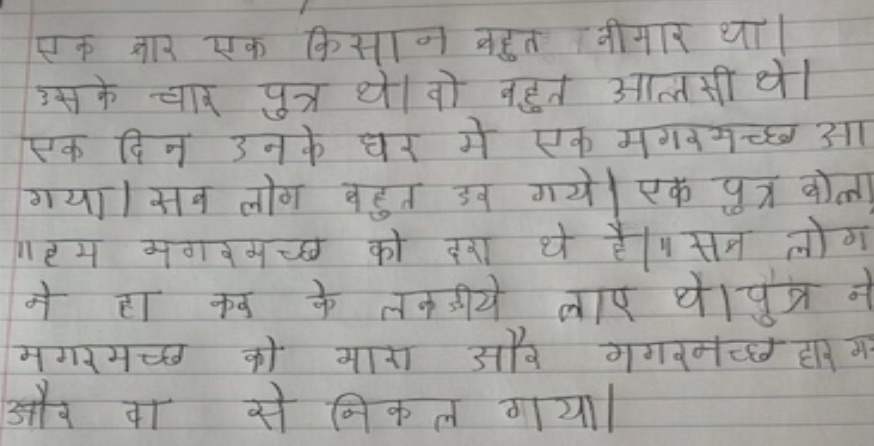 एक बार एक किसान बहुत बीमार था।
उसके चार पुत्र थे। वो बहुत आलसी थे।
एक दिन उनके घर मे एक मगरमच्छ आ
गया। सब लोग बहुत डर गये। एक पुत्र बोला
"हम मगरमच्छ को हरा थे है।" सब लोग
ने हा कर के लकडीये लाए थे। पुत्र ने
मगरमच्छ को मारा और मगरमच्छ हार
और वा से निकल गया।